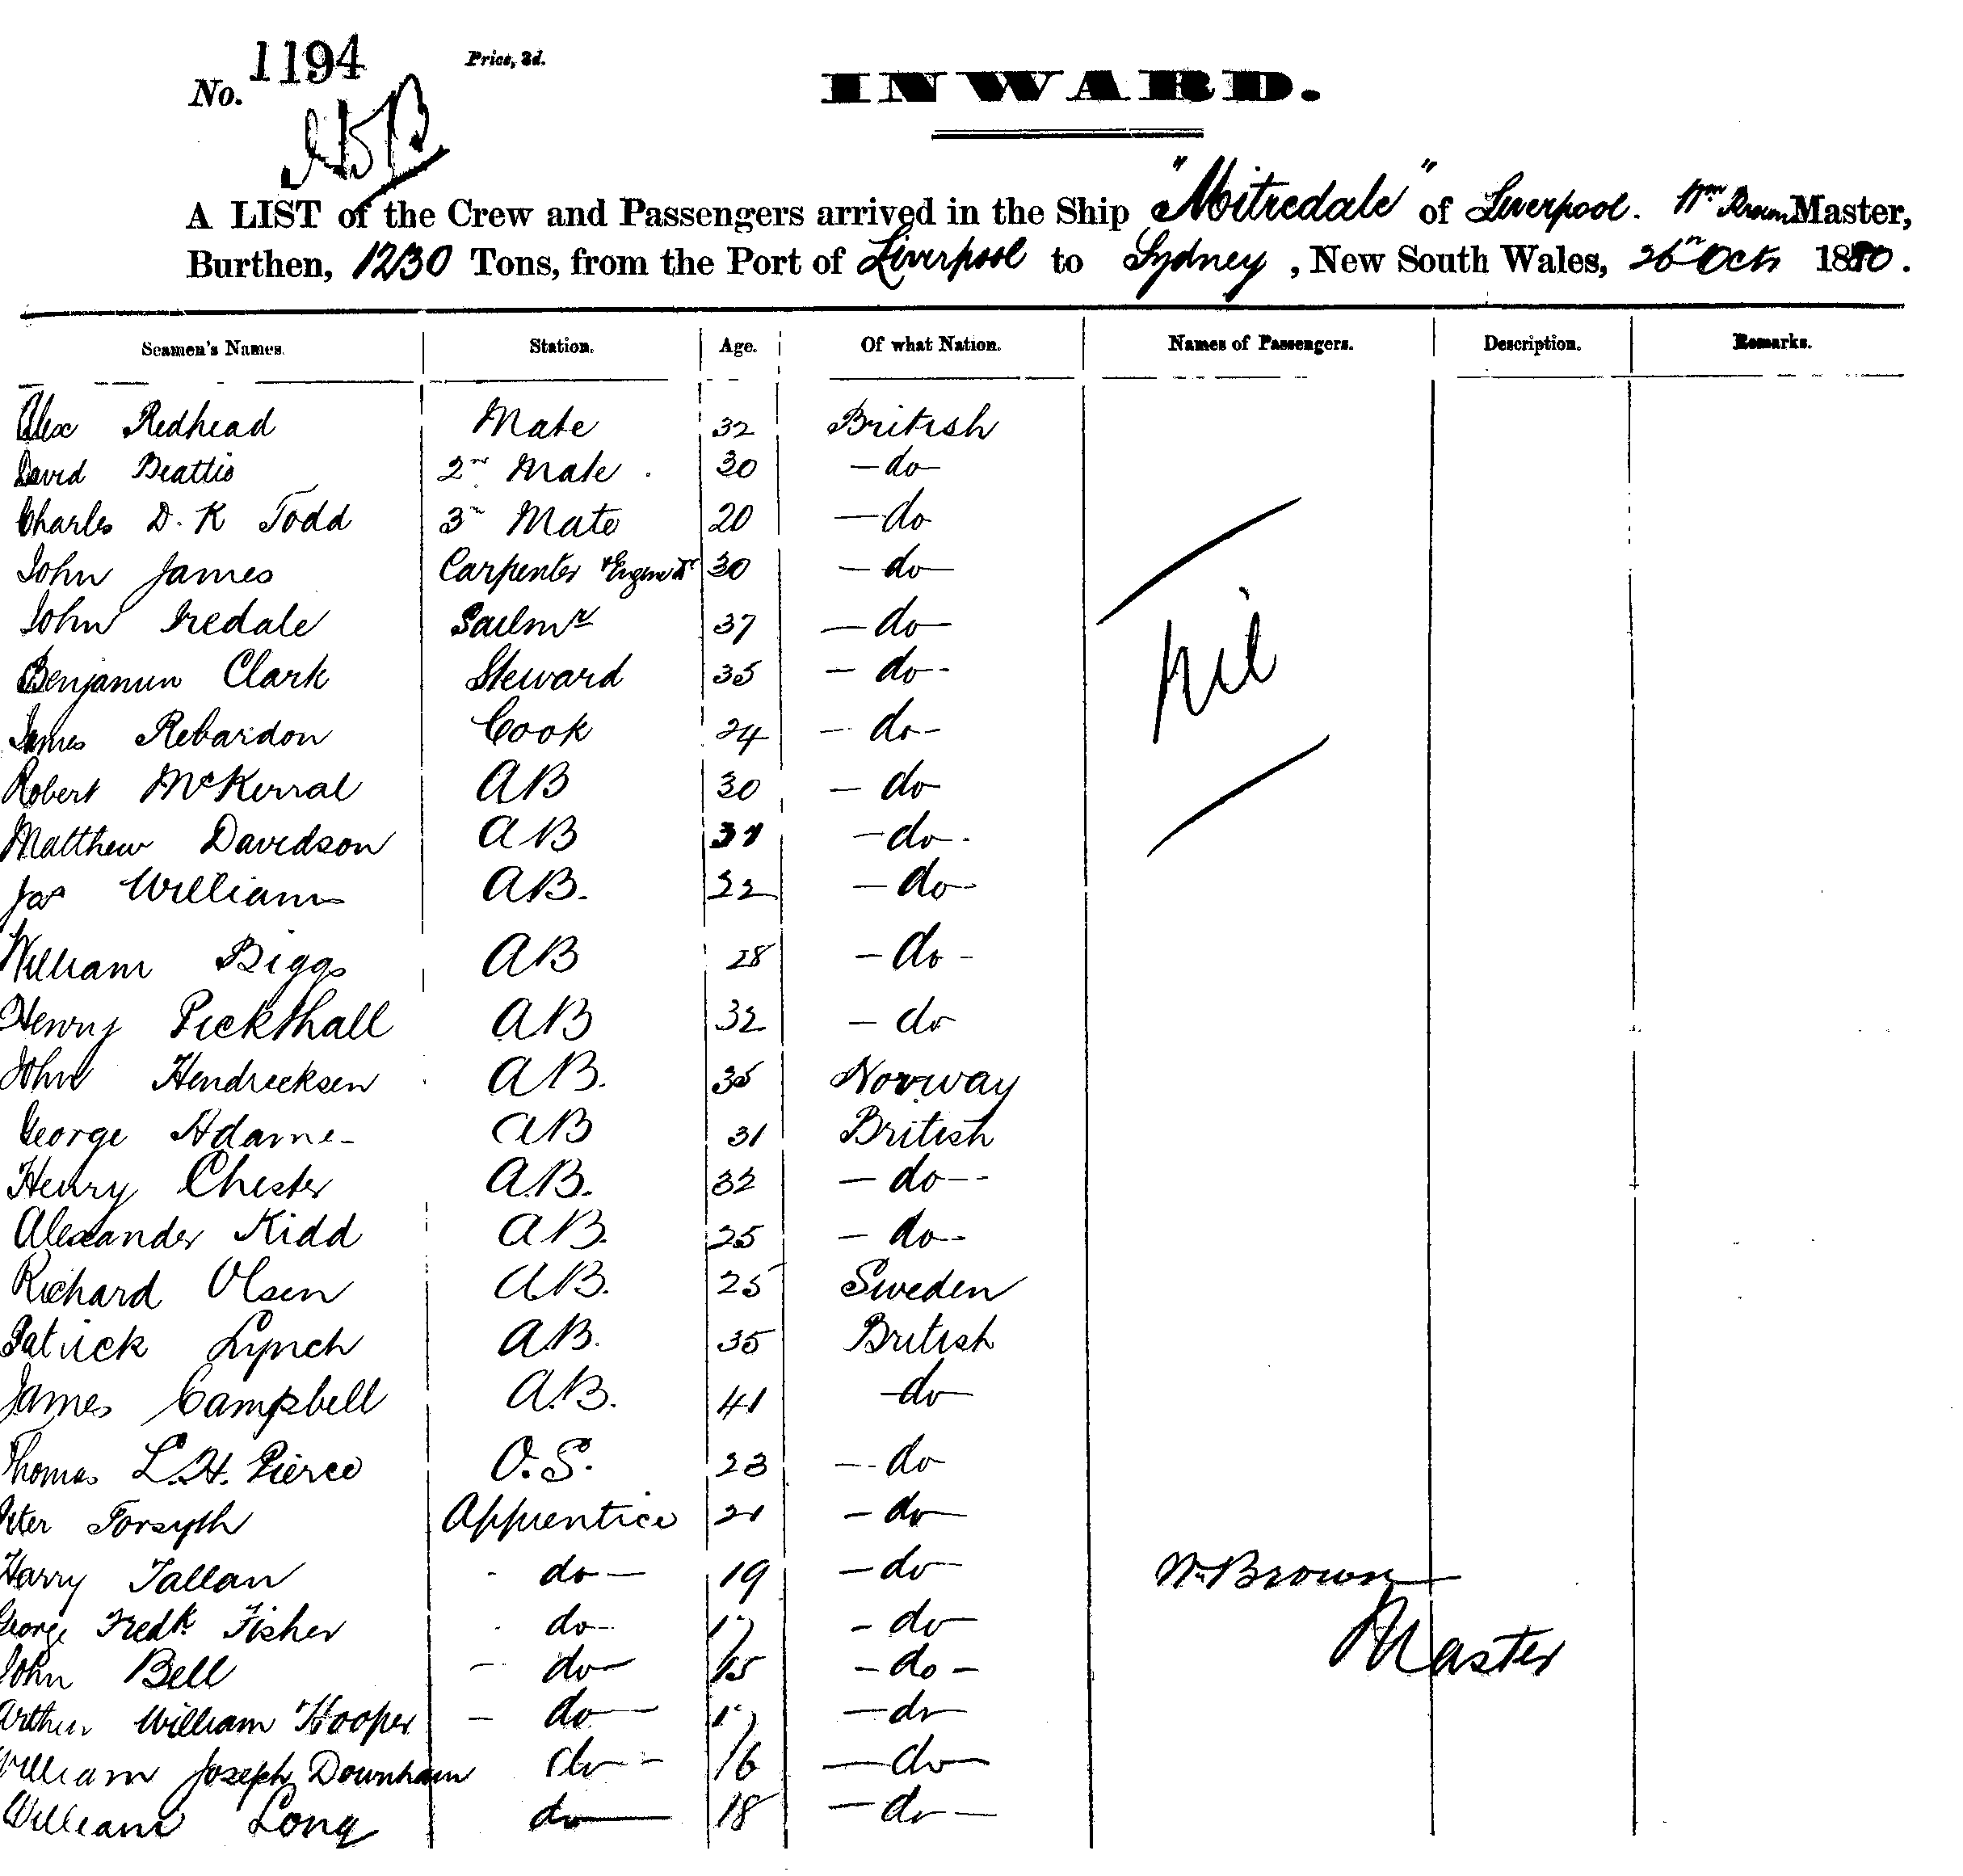 No. 1194 Price, 3d.
INWARD.
A LIST of the Crew and Passengers arrived in the Ship "Mitredale" of Liverpool. Wm Brown Master,
Burthen, 1230 Tons, from the Port of Liverpool to Sydney, New South Wales, 26th Octr 1880.
Seamen's Names. Station. Age. Of what Nation. Names of Passengers. Description. Remarks.
Alex Redhead Mate 32 British
David Beattie 2nd Mate. 30 - do -
Charles D. K Todd 3rd Mate 20 - do
John James Carpenter & Engine Dr 30 - do -
John Iredale Sailmr 37 - do -
Benjamin Clark Steward 35 - do -
nil
James Rebardon Cook 24 - do -
Robert McKerral AB 30 - do
Matthew Davidson AB - do -
Jas William AB. 22 - do -
William Biggs AB 28 - do -
Henry Pickthall AB 32 - do
John Hendricksen AB. 35 Norway
George Adams AB 31 British
Henry Chester A.B. 32 - do - -
Alexander Kidd AB. 25 - do -
Richard Olsen A.B. 25 Sweden
Patrick Lynch A.B. 35 British
James Campbell A.B. 41 - do -
Thomas L. H. Pierce O.S. 23 - do
Peter Forsyth Apprentice 21 - do -
Harry Tallan - do - 19 - do -
Wm Brown
George Fredk. Fisher - do - 17 - do -
Master
John Bell - do - 15 - do -
Arthur William Hooper - do - 17 - do -
William Joseph Downham do - 16 - do -
William Long do - 18 - do -